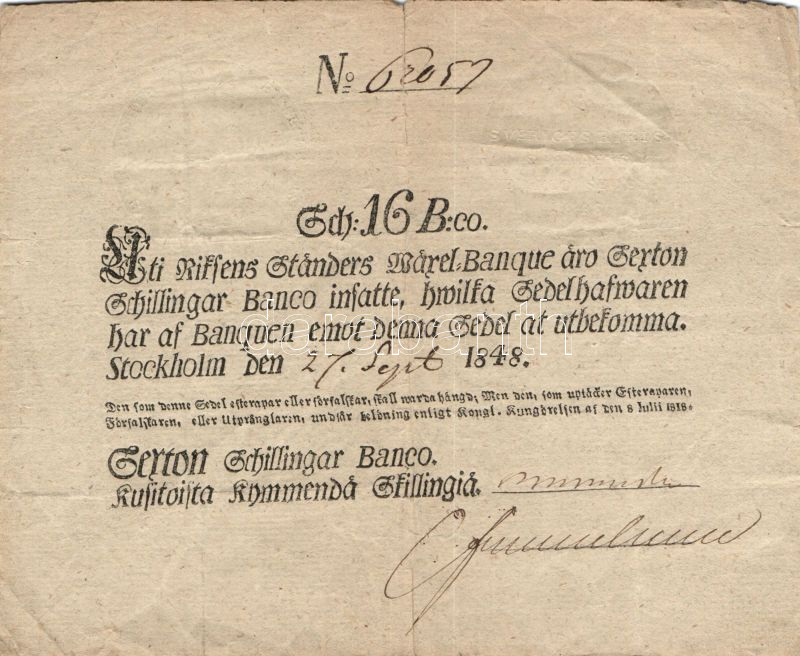 No 62057
Sch: 16 B:co.
Uti Riksens Ständers Wäxel-Banque äro Sexton
Schillingar Banco insatte, hwilka Sedelhafwaren
har af Banquen emot denna Sedel at utbekomma.
Stockholm den 27 Sept 1848.
Den som denne Sedel efterapar eller förfalskar, skall warda hängd; Men den, som uptäcker Efteraparen,
Förfalskaren, eller Utpränglaren, undfår belöning enligt Kongl. Kungörelsen af den 8 Julii 1818.
Sexton Schillingar Banco.
Kusitoista Kymmendä Skillingiä.